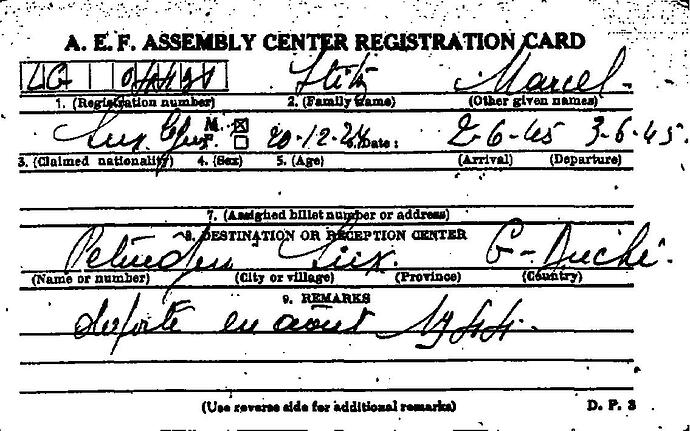 A. E. F. ASSEMBLY CENTER REGISTRATION CARD
Marcel
1. (Registration number) 2. (Family name) (Other given names)
Lux. M. ☒ 20-12-24 Date: 2-6-45 3-6-45.
F. ☐
3. (Claimed nationality) 4. (Sex) 5. (Age) (Arrival) (Departure)
7. (Assigned billet number or address)
8. DESTINATION OR RECEPTION CENTER
Lux. G-Duché.
(Name or number) (City or village) (Province) (Country)
9. REMARKS
déporté en août 1944.
(Use reverse side for additional remarks) D. P. 3